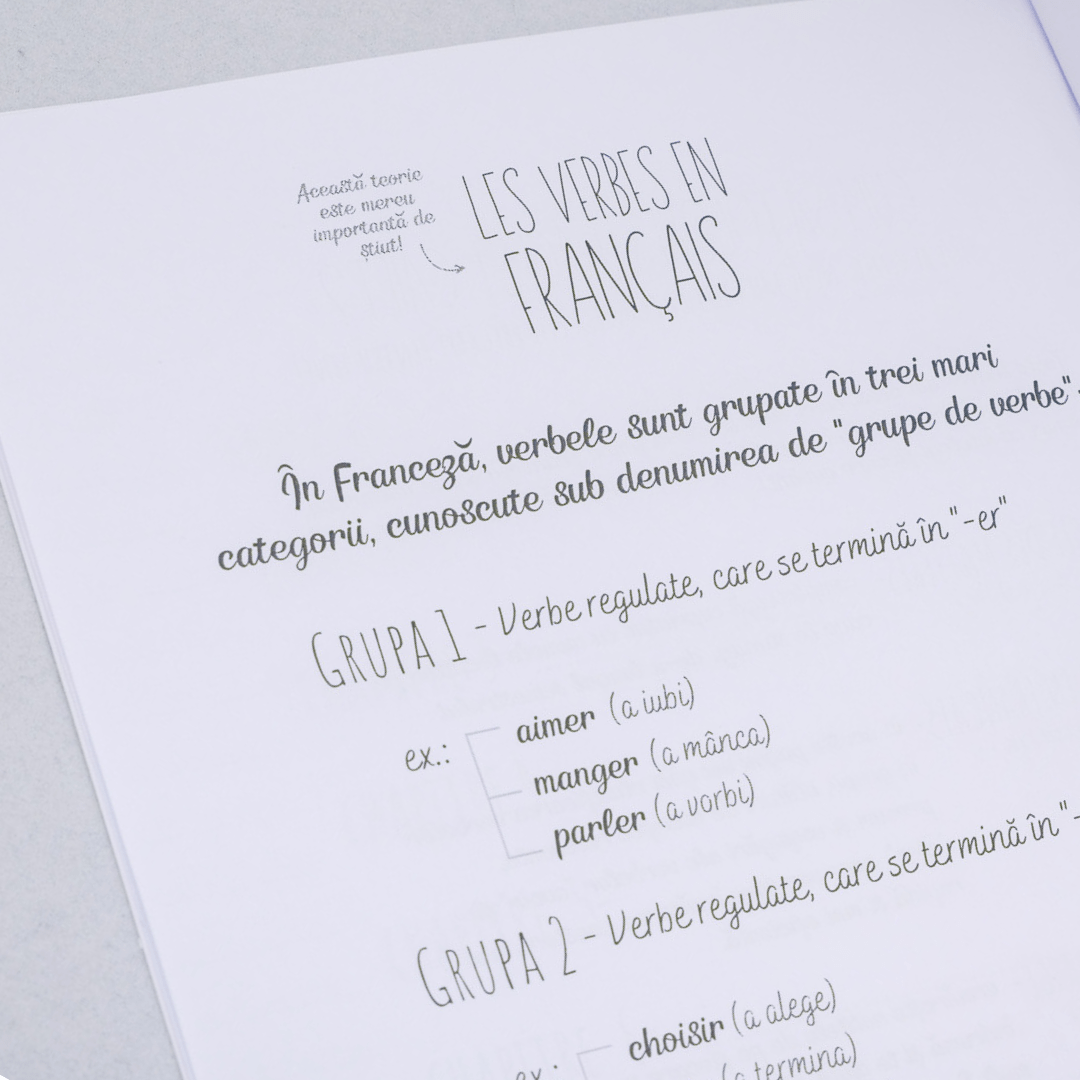 Această teorie
este mereu
importantă de
știut!
LES VERBES EN
FRANÇAIS
În Franceză, verbele sunt grupate în trei mari
categorii, cunoscute sub denumirea de "grupe de verbe"
GRUPA 1 - Verbe regulate, care se termină în "-er"
ex.:
aimer (a iubi)
manger (a mânca)
parler (a vorbi)
GRUPA 2 - Verbe regulate, care se termină în "-
choisir (a alege)
ex.:
(a termina)